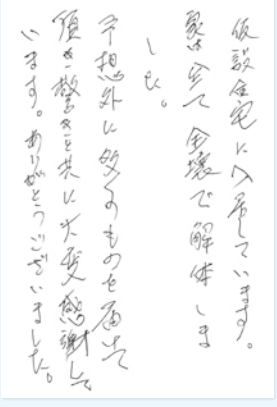 仮設住宅に入居しています。
家は全て全壊で解体しま
した。
予想外に多くのものを届けて
頂き驚きと共に大変感謝して
います。ありがとうございました。